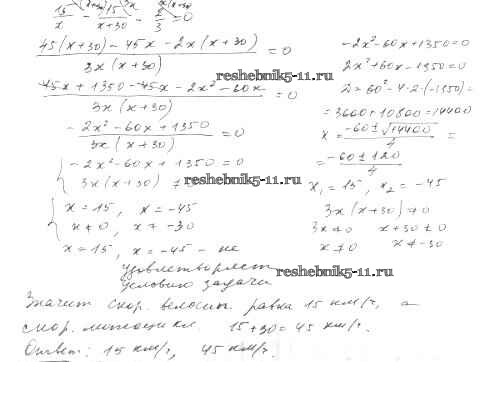 15/x - 15/(x+30) - 2/3 = 0
(45(x+30) - 45x - 2x(x+30)) / (3x(x+30)) = 0
reshebnik5-11.ru
(45x + 1350 - 45x - 2x² - 60x) / (3x(x+30)) = 0
(-2x² - 60x + 1350) / (3x(x+30)) = 0
{ -2x² - 60x + 1350 = 0
3x(x+30) ≠
reshebnik5-11.ru
{ x = 15, x = -45
x ≠ 0, x ≠ -30
x = 15, x = -45 - не
удовлетворяет
условию задачи
-2x² - 60x + 1350 = 0
2x² + 60x - 1350 = 0
D = 60² - 4·2·(-1350) =
= 3600 + 10800 = 14400
x = (-60 ± √14400) / 4 =
= (-60 ± 120) / 4
x₁ = 15, x₂ = -45
3x(x+30) ≠ 0
3x ≠ 0 x+30 ≠ 0
x ≠ 0 x ≠ -30
reshebnik5-11.ru
Значит скор. велосип. равна 15 км/ч, а
скор. мотоцикл. 15+30 = 45 км/ч.
Ответ: 15 км/ч, 45 км/ч.